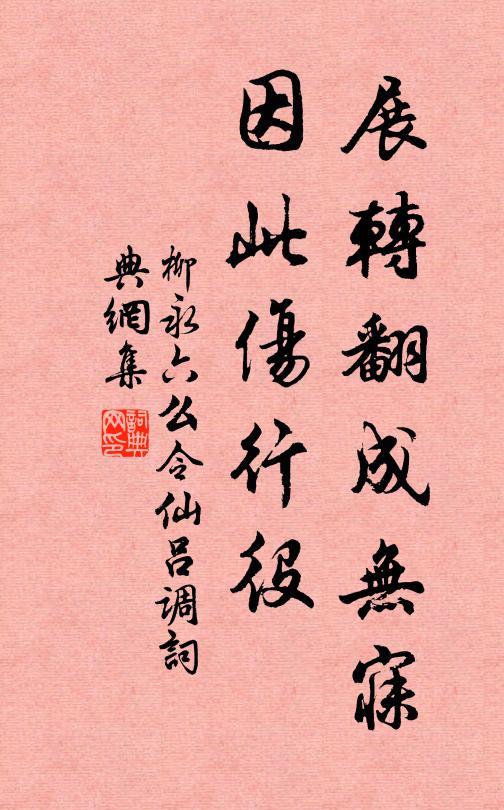 展轉翻成無寐
因此傷行役
柳永六么令仙呂调詞
典網集
詞典網印